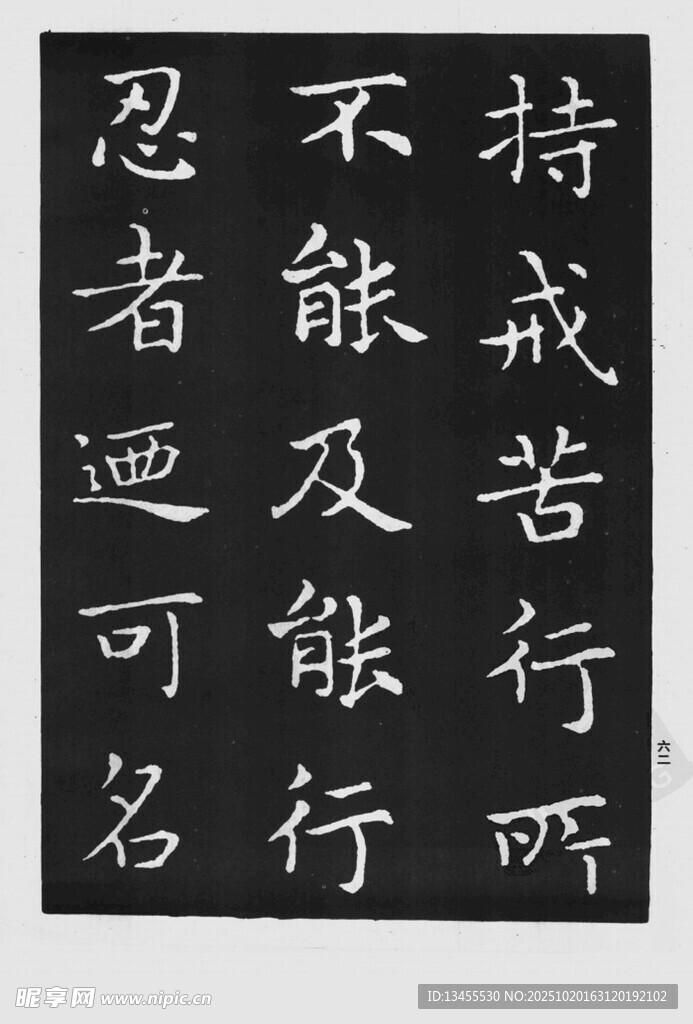 持戒苦行所
不能及能行
忍者迺可名
六二
昵享网 www.nipic.cn
ID:13455530 NO:20251020163120192102